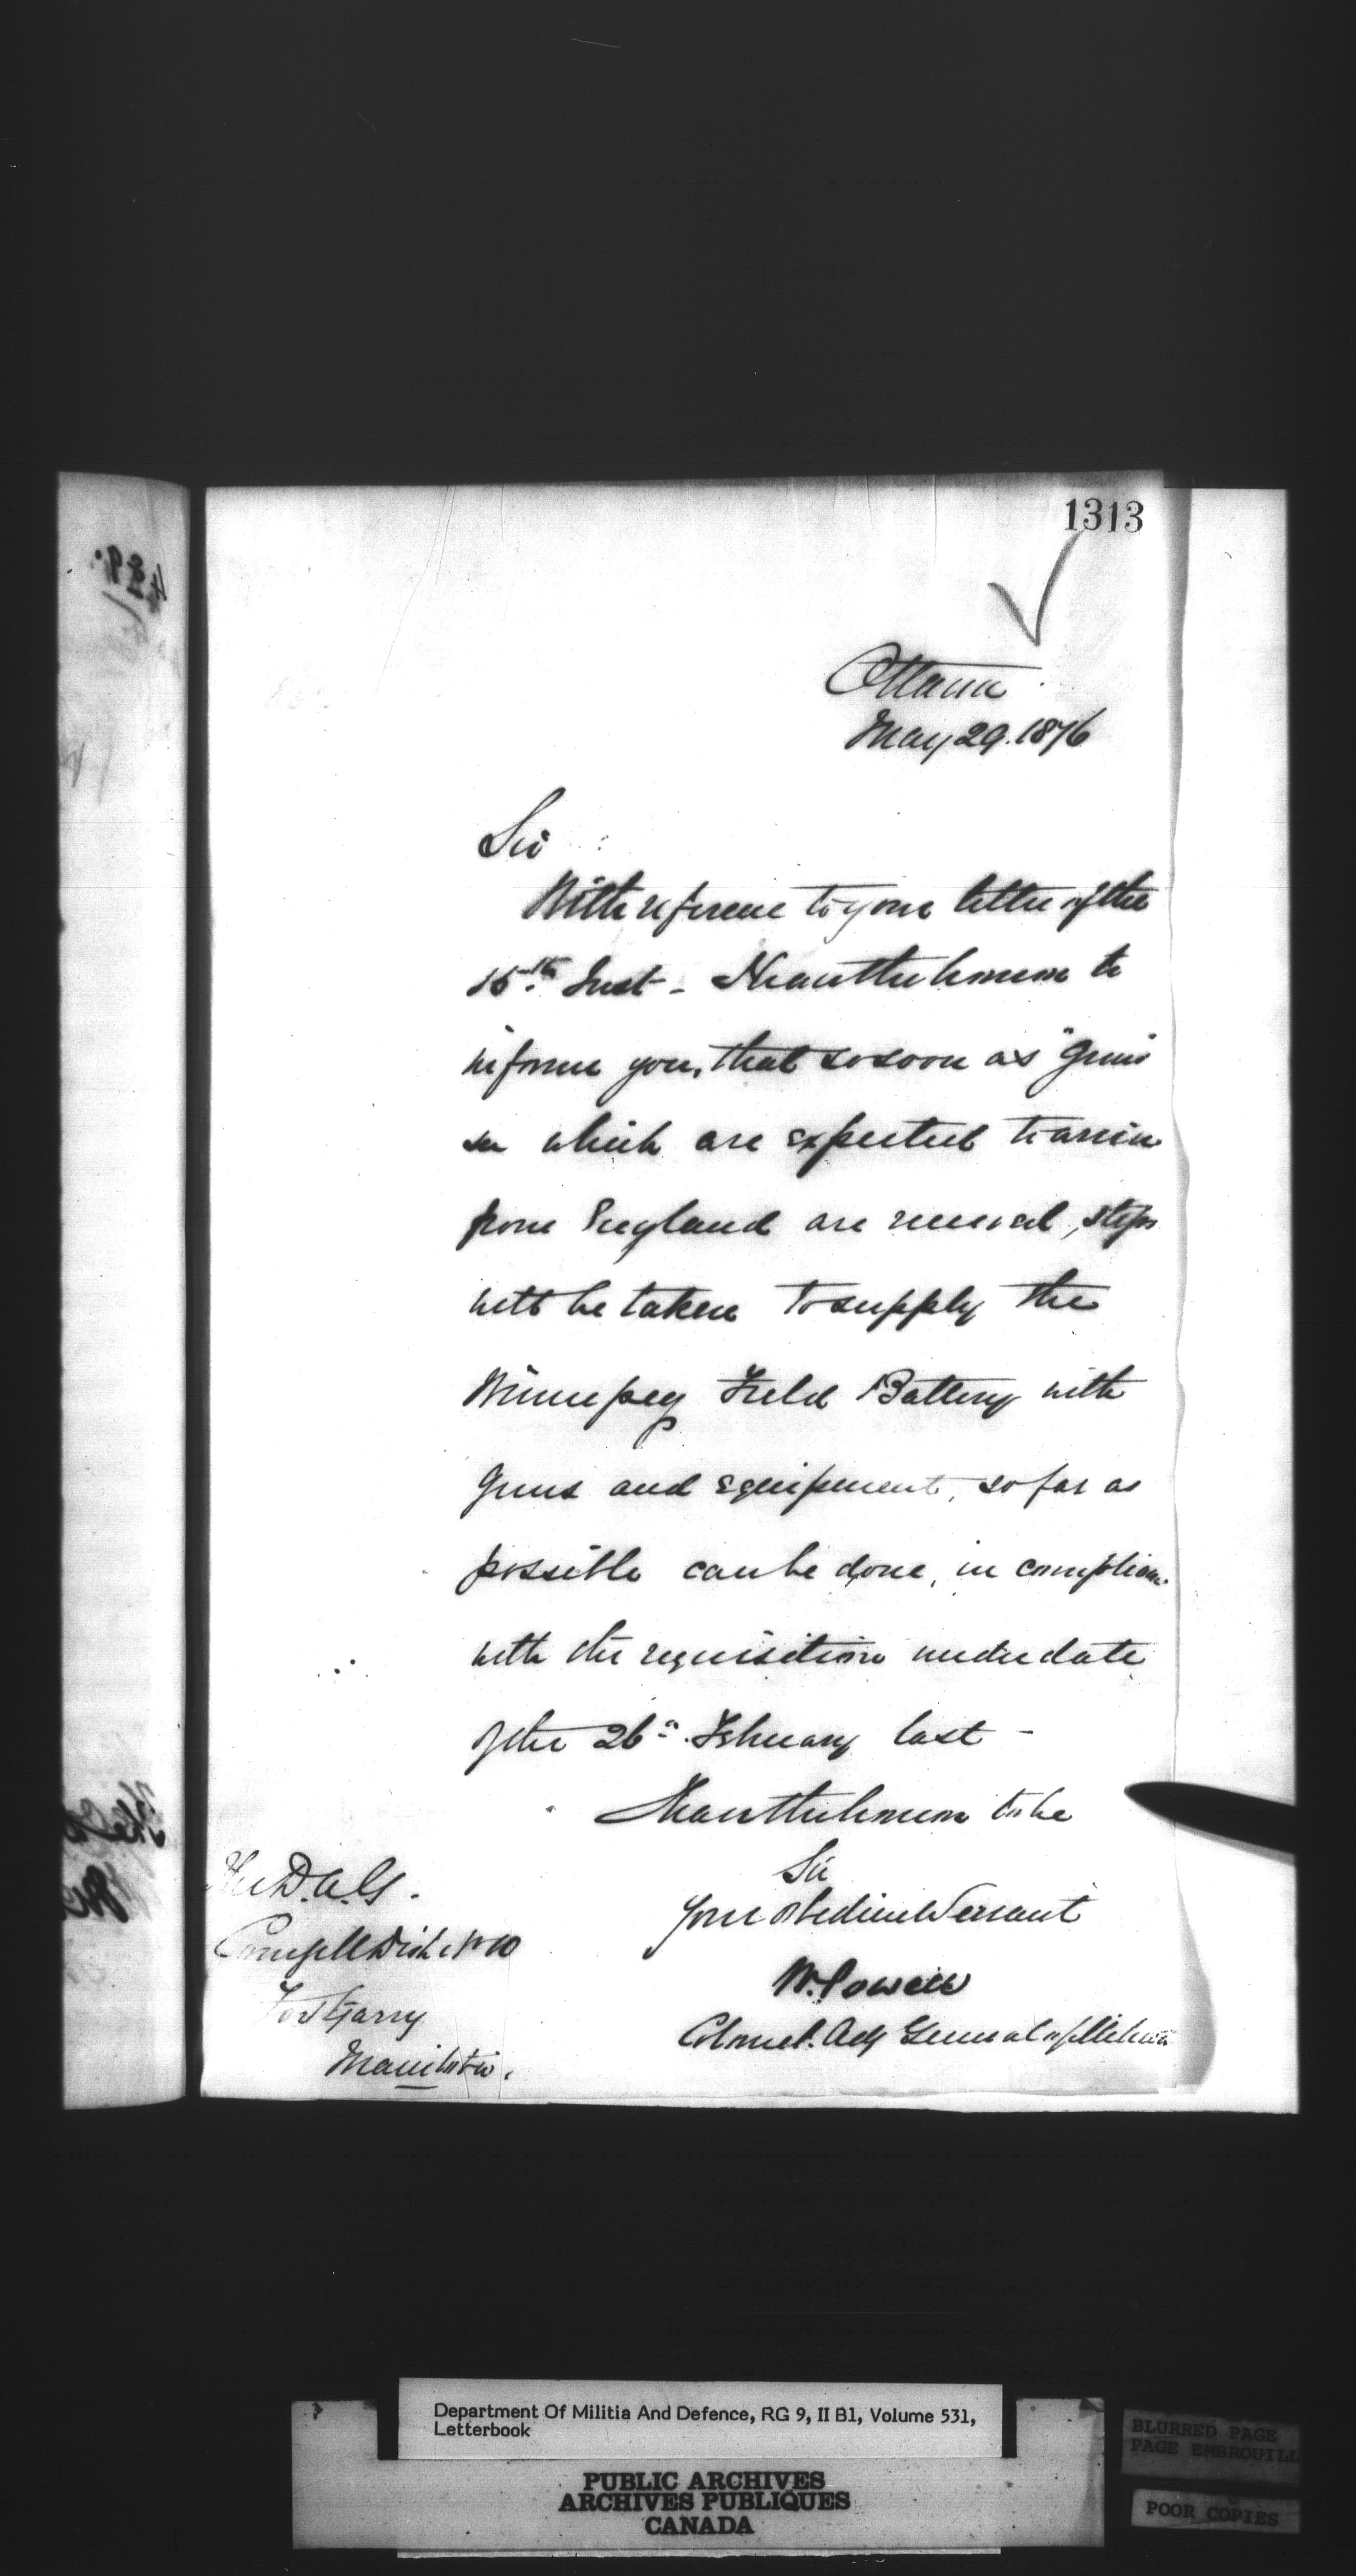 1313
Ottawa
May 29. 1876
Sir
With reference to your letter of the
15th Inst - I have the honour to
inform you, that so soon as "guns
&c which are expected to arrive
from England are received, steps
will be taken to supply the
Winnipeg Field Battery with
Guns and equipment, so far as
possible can be done, in compliance
with the requisition under date
of the 26th February last -
I have the honour to be
Sir
Your obedient Servant
W. Powell
Colonel. Adj General of Militia
The D.A.G.
Comg M Dist No 10
Fort Garry
Manitoba.
Department Of Militia And Defence, RG 9, II B1, Volume 531,
Letterbook
PUBLIC ARCHIVES
ARCHIVES PUBLIQUES
CANADA
BLURRED PAGE
PAGE EMBROUILL
POOR COPIES